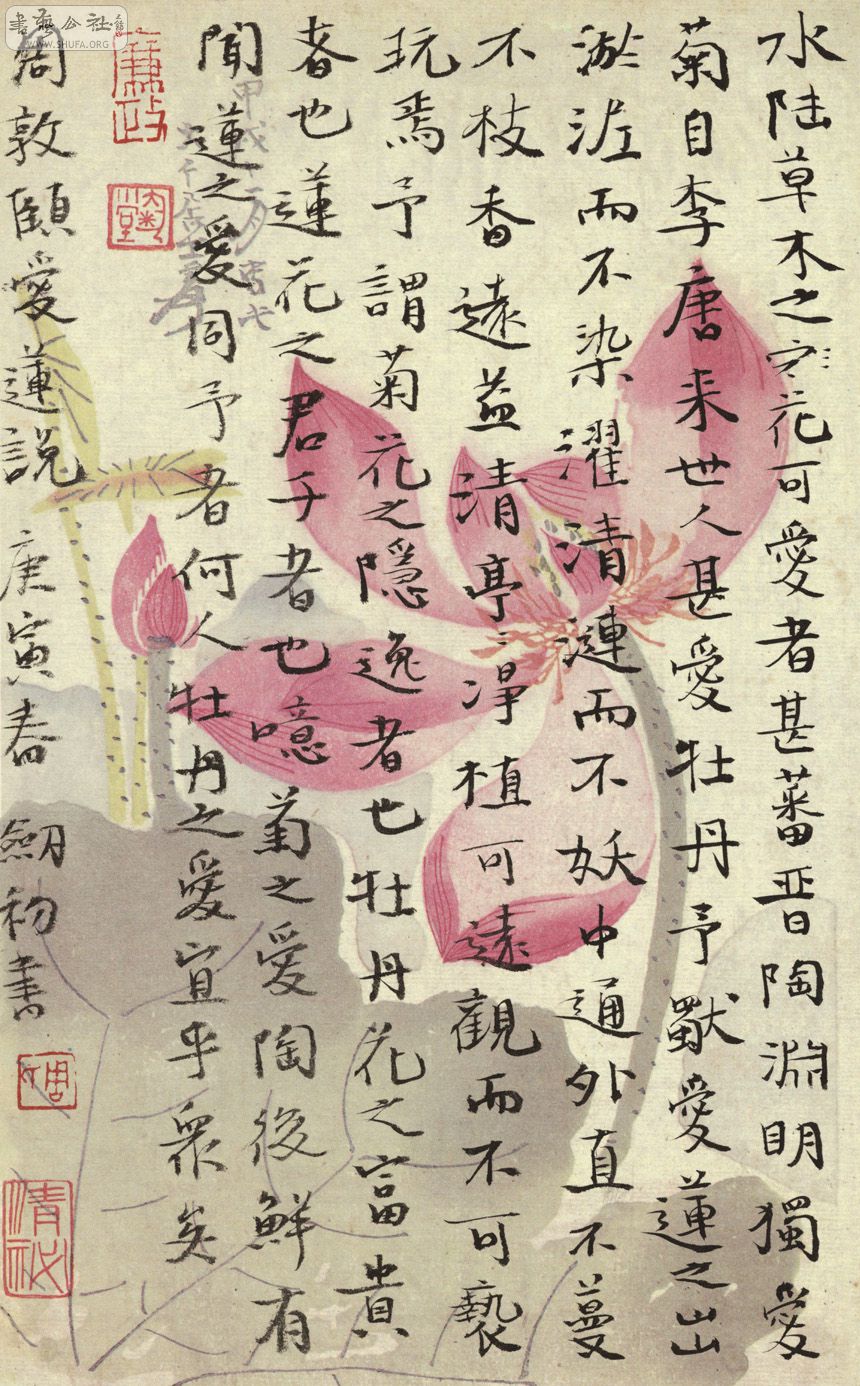 水陆草木之花可愛者甚蕃晋陶淵明獨愛
菊自李唐来世人甚愛牡丹予獨愛蓮之出
淤泥而不染濯清漣而不妖中通外直不蔓
不枝香遠益清亭亭淨植可遠觀而不可褻
玩焉予謂菊花之隱逸者也牡丹花之富貴
者也蓮花之君子者也噫菊之愛陶後鮮有
聞蓮之愛同予者何人牡丹之愛宜乎衆矣
周敦頤愛蓮説 庚寅春 劒初書
書藝公社
WWW.SHUFA.ORG